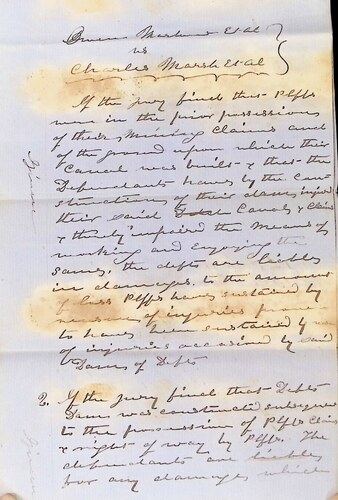 Owen Marlowe Et al
vs
Charles Marsh Et al
If the jury find that Plffs
were in the prior possession
of their Mining Claims and
of the ground upon which their
Canal was built & that the
Defendants have by the Con-
struction of their dams, injured
their said Canal & Claims
& thereby impaired the Means of
working and enjoying the
same, the defts are liable
in damages, to the amount
of loss Plffs have sustained by
reason of injuries proven
to have been sustained by
of injuries occasioned by said
Dams of Defts
2. If the jury find that Defts
Dam was constructed subsequent
to the possession of Plffs Claims
& right of way by Plffs. The
defendants are liable
for any damages which
Given
Given